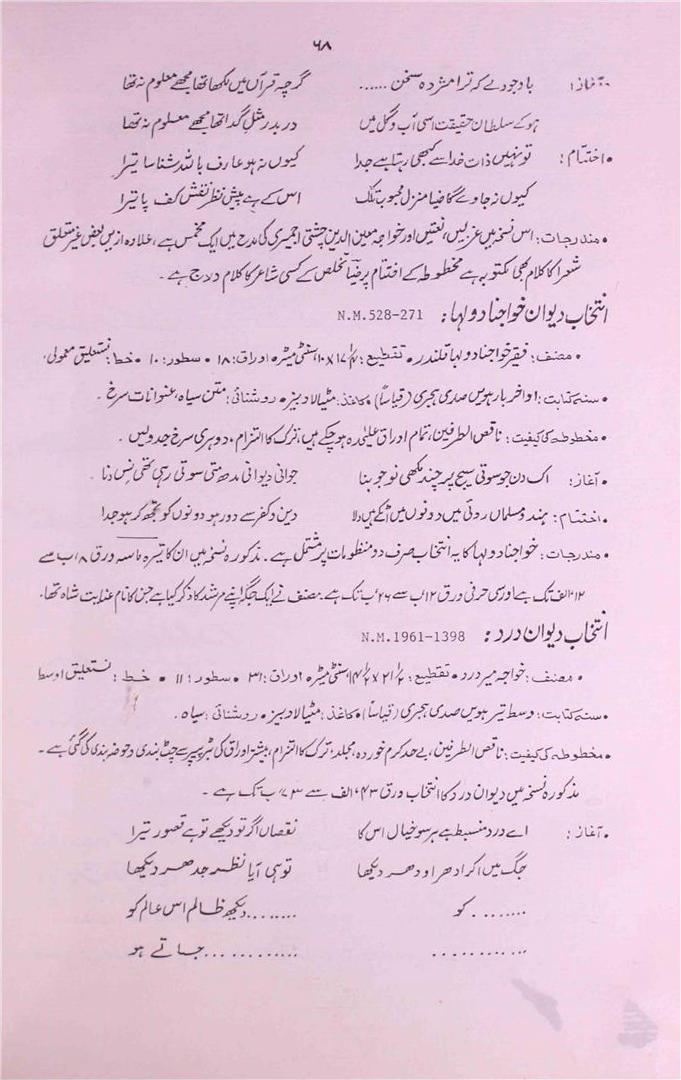 ۶۸
•آغاز: باوجودیکہ ترا مژدہ سخن ...... گرچہ قرآں میں لکھا تھا مجھے معلوم نہ تھا
ہو کے سلطان حقیقت اسی آب و گل میں در بدر مثل گدا تھا مجھے معلوم نہ تھا
•اختتام: تو نہیں ذات خدا سے کبھی رہتا ہے جدا کیوں نہ ہو عارف باللہ شناسا تیرا
کیوں نہ جاوے گا ضیا منزل محبوب تلک اس کے ہے پیش نظر نقش کف پا تیرا
•مندرجات: اس نسخہ میں غزلیں، نعتیں اور خواجہ معین الدین چشتی اجمیری کی مدح میں ایک مخمس ہے، علاوہ ازیں بعض غیر متعلق
شعرا کا کلام بھی مکتوبہ ہے مخطوطہ کے اختتام پر ضیا تخلص کے کسی شاعر کا کلام درج ہے۔
انتخاب دیوان خواجنا دولہا: N.M.528-271
•مصنف: فقیر خواجنا دولہا قلندر • تقطیع: ۱۷/۲ x ۱۰ سنٹی میٹر • اوراق: ۱۸ • سطور: ۱۰ • خط: نستعلیق معمولی،
•سنہ کتابت: اواخر بارہویں صدی ہجری (قیاساً) • کاغذ: مٹیالا دبیز • روشنائی: متن سیاہ، عنوانات سرخ۔
•مخطوطہ کی کیفیت: ناقص الطرفین، تمام اوراق علیحدہ ہو چکے ہیں، ترک کا التزام، دوہری سرخ جدولیں۔
•آغاز: اک دن جو سوتی سیج پر چند مکھی نوجوبنا جوانی دیوانی مدھ متی سوتی رہی تھی نس دنا
•اختتام: ہندو مسلماں روئی میں دونوں میں اٹکے ہیں دلا دین و کفر سے دور ہو دونوں کو تجھ کر ہو جدا
•مندرجات: خواجنا دولہا کا یہ انتخاب صرف دو منظومات پر مشتمل ہے۔ مذکورہ نسخہ میں ان کا تیرہ ماسہ ورق ۸ ب سے
۱۲ الف تک ہے اور سی حرفی ورق ۱۲ ب سے ۲۶ ب تک ہے۔ مصنف نے ایک جگہ اپنے مرشد کا ذکر کیا ہے جن کا نام عنایت شاہ تھا۔
انتخاب دیوان درد: N.M.1961-1398
•مصنف: خواجہ میر درد • تقطیع: ۲۱/۲ x ۱۴/۲ سنٹی میٹر • اوراق: ۳۱ • سطور: ۱۱ • خط: نستعلیق اوسط
•سنہ کتابت: وسط تیرہویں صدی ہجری (قیاساً) • کاغذ: مٹیالا دبیز • روشنائی: سیاہ۔
•مخطوطہ کی کیفیت: ناقص الطرفین، بے حد کرم خوردہ، مجلد، ترک کا التزام، بیشتر اوراق کی بٹر پیپر سے چٹ بندی و حوضہ بندی کی گئی ہے۔
مذکورہ نسخہ میں دیوان درد کا انتخاب ورق ۴۳ الف سے ۷۳ ب تک ہے۔
•آغاز: اے درد منبسط ہے ہر سو خیال اس کا نقصاں اگر تو دیکھے تو ہے تصور تیرا
جگ میں آکر ادھر اودھر دیکھا تو ہی آیا نظر جدھر دیکھا
........ کو ........ دیکھ ظالم اس عالم کو
............ ............ جاتے ہو